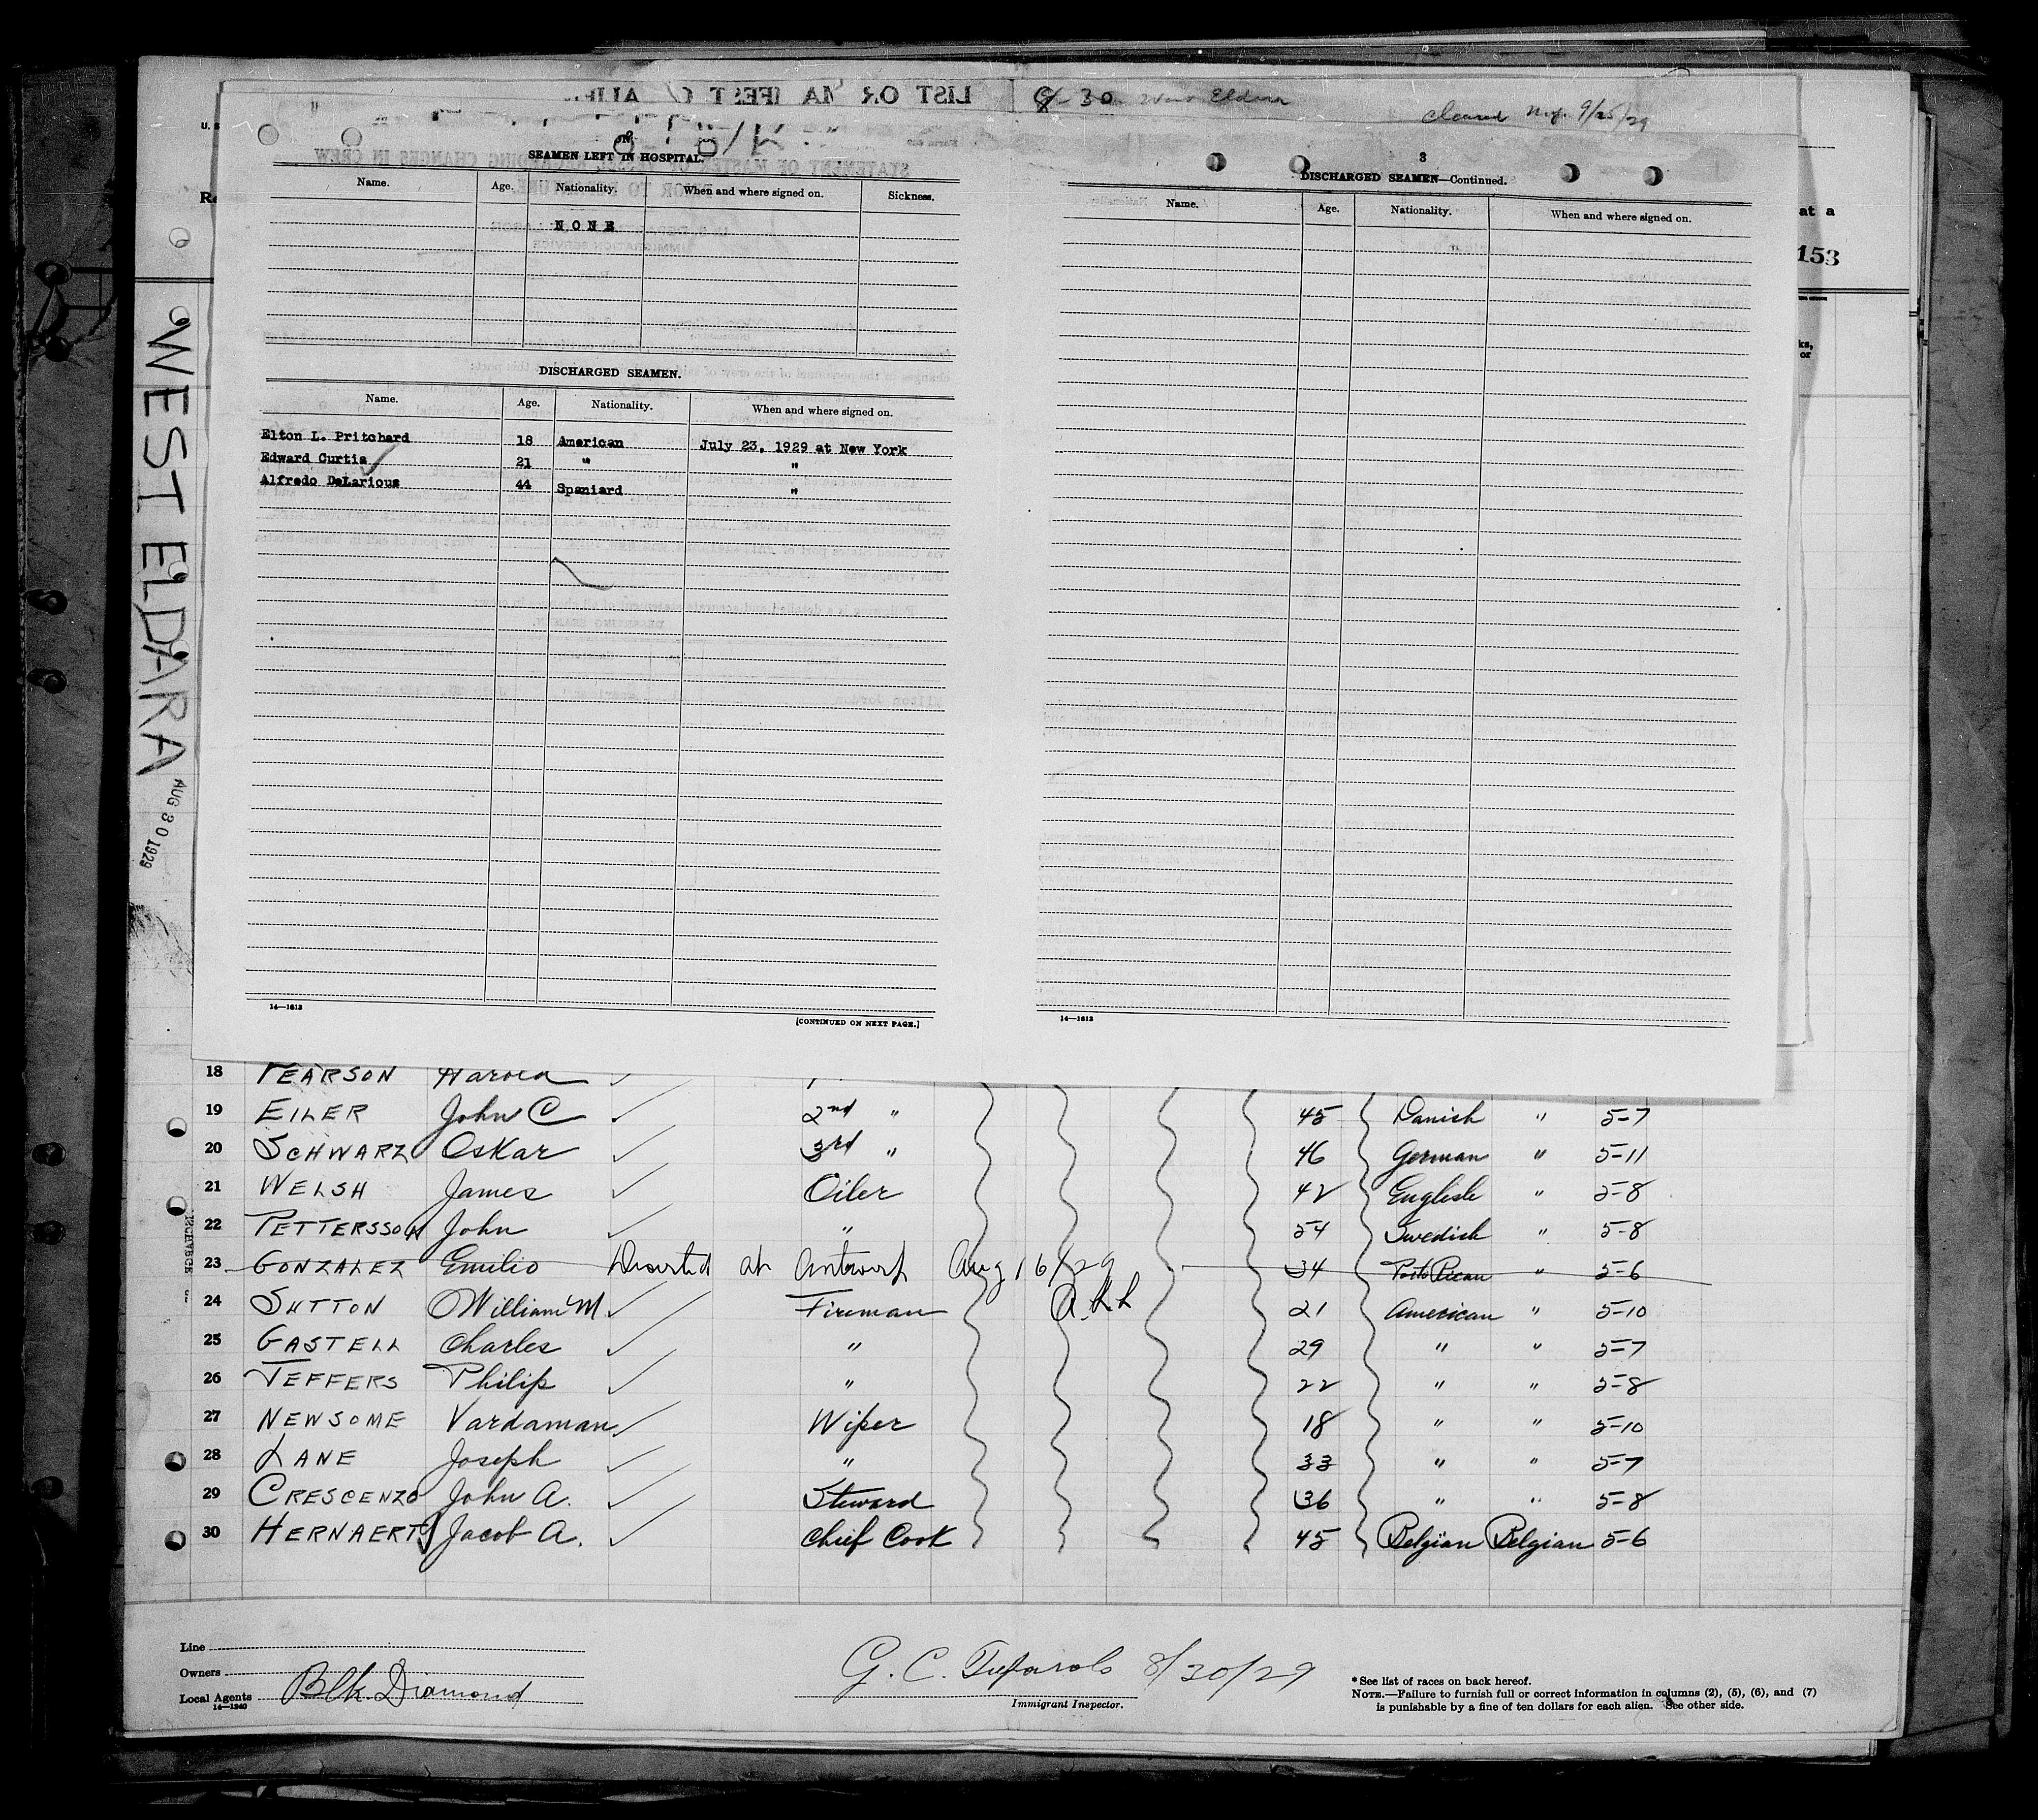 8-30 West Eldara
Cleared Nwp. 9/25/29
2
SEAMEN LEFT IN HOSPITAL.
Name. Age. Nationality. When and where signed on. Sickness.
NONE
DISCHARGED SEAMEN.
Name. Age. Nationality. When and where signed on.
Elton L. Pritchard 18 American July 23, 1929 at New York
Edward Curtis 21 " "
Alfredo DeLarious 44 Spaniard "
14—1613
[CONTINUED ON NEXT PAGE.]
3
DISCHARGED SEAMEN—Continued.
Name. Age. Nationality. When and where signed on.
14—1613
at a
153
ks,
or
WEST ELDARA
AUG 30 1929
18 PEARSON Harold
19 EILER John C 2nd " 45 Danish " 5-7
20 SCHWARZ Oskar 3rd " 46 German " 5-11
21 WELSH James Oiler 42 English " 5-8
22 PETTERSSON John " 54 Swedish " 5-8
23 GONZALEZ Emilio Deserted at Antwerp Aug 16/29 34 Porto Rican " 5-6
24 SUTTON William M Fireman 21 American " 5-10
25 GASTELL Charles " 29 " " 5-7
26 JEFFERS Philip " 22 " " 5-8
27 NEWSOME Vardaman Wiper 18 " " 5-10
28 LANE Joseph " 33 " " 5-7
29 CRESCENZO John A. Steward 36 " " 5-8
30 HERNAERT Jacob A. Chief Cook 45 Belgian Belgian 5-6
Line
Owners
Local Agents Blk Diamond
14—1240
8/30/29
Immigrant Inspector.
* See list of races on back hereof.
NOTE.—Failure to furnish full or correct information in columns (2), (5), (6), and (7)
is punishable by a fine of ten dollars for each alien. See other side.